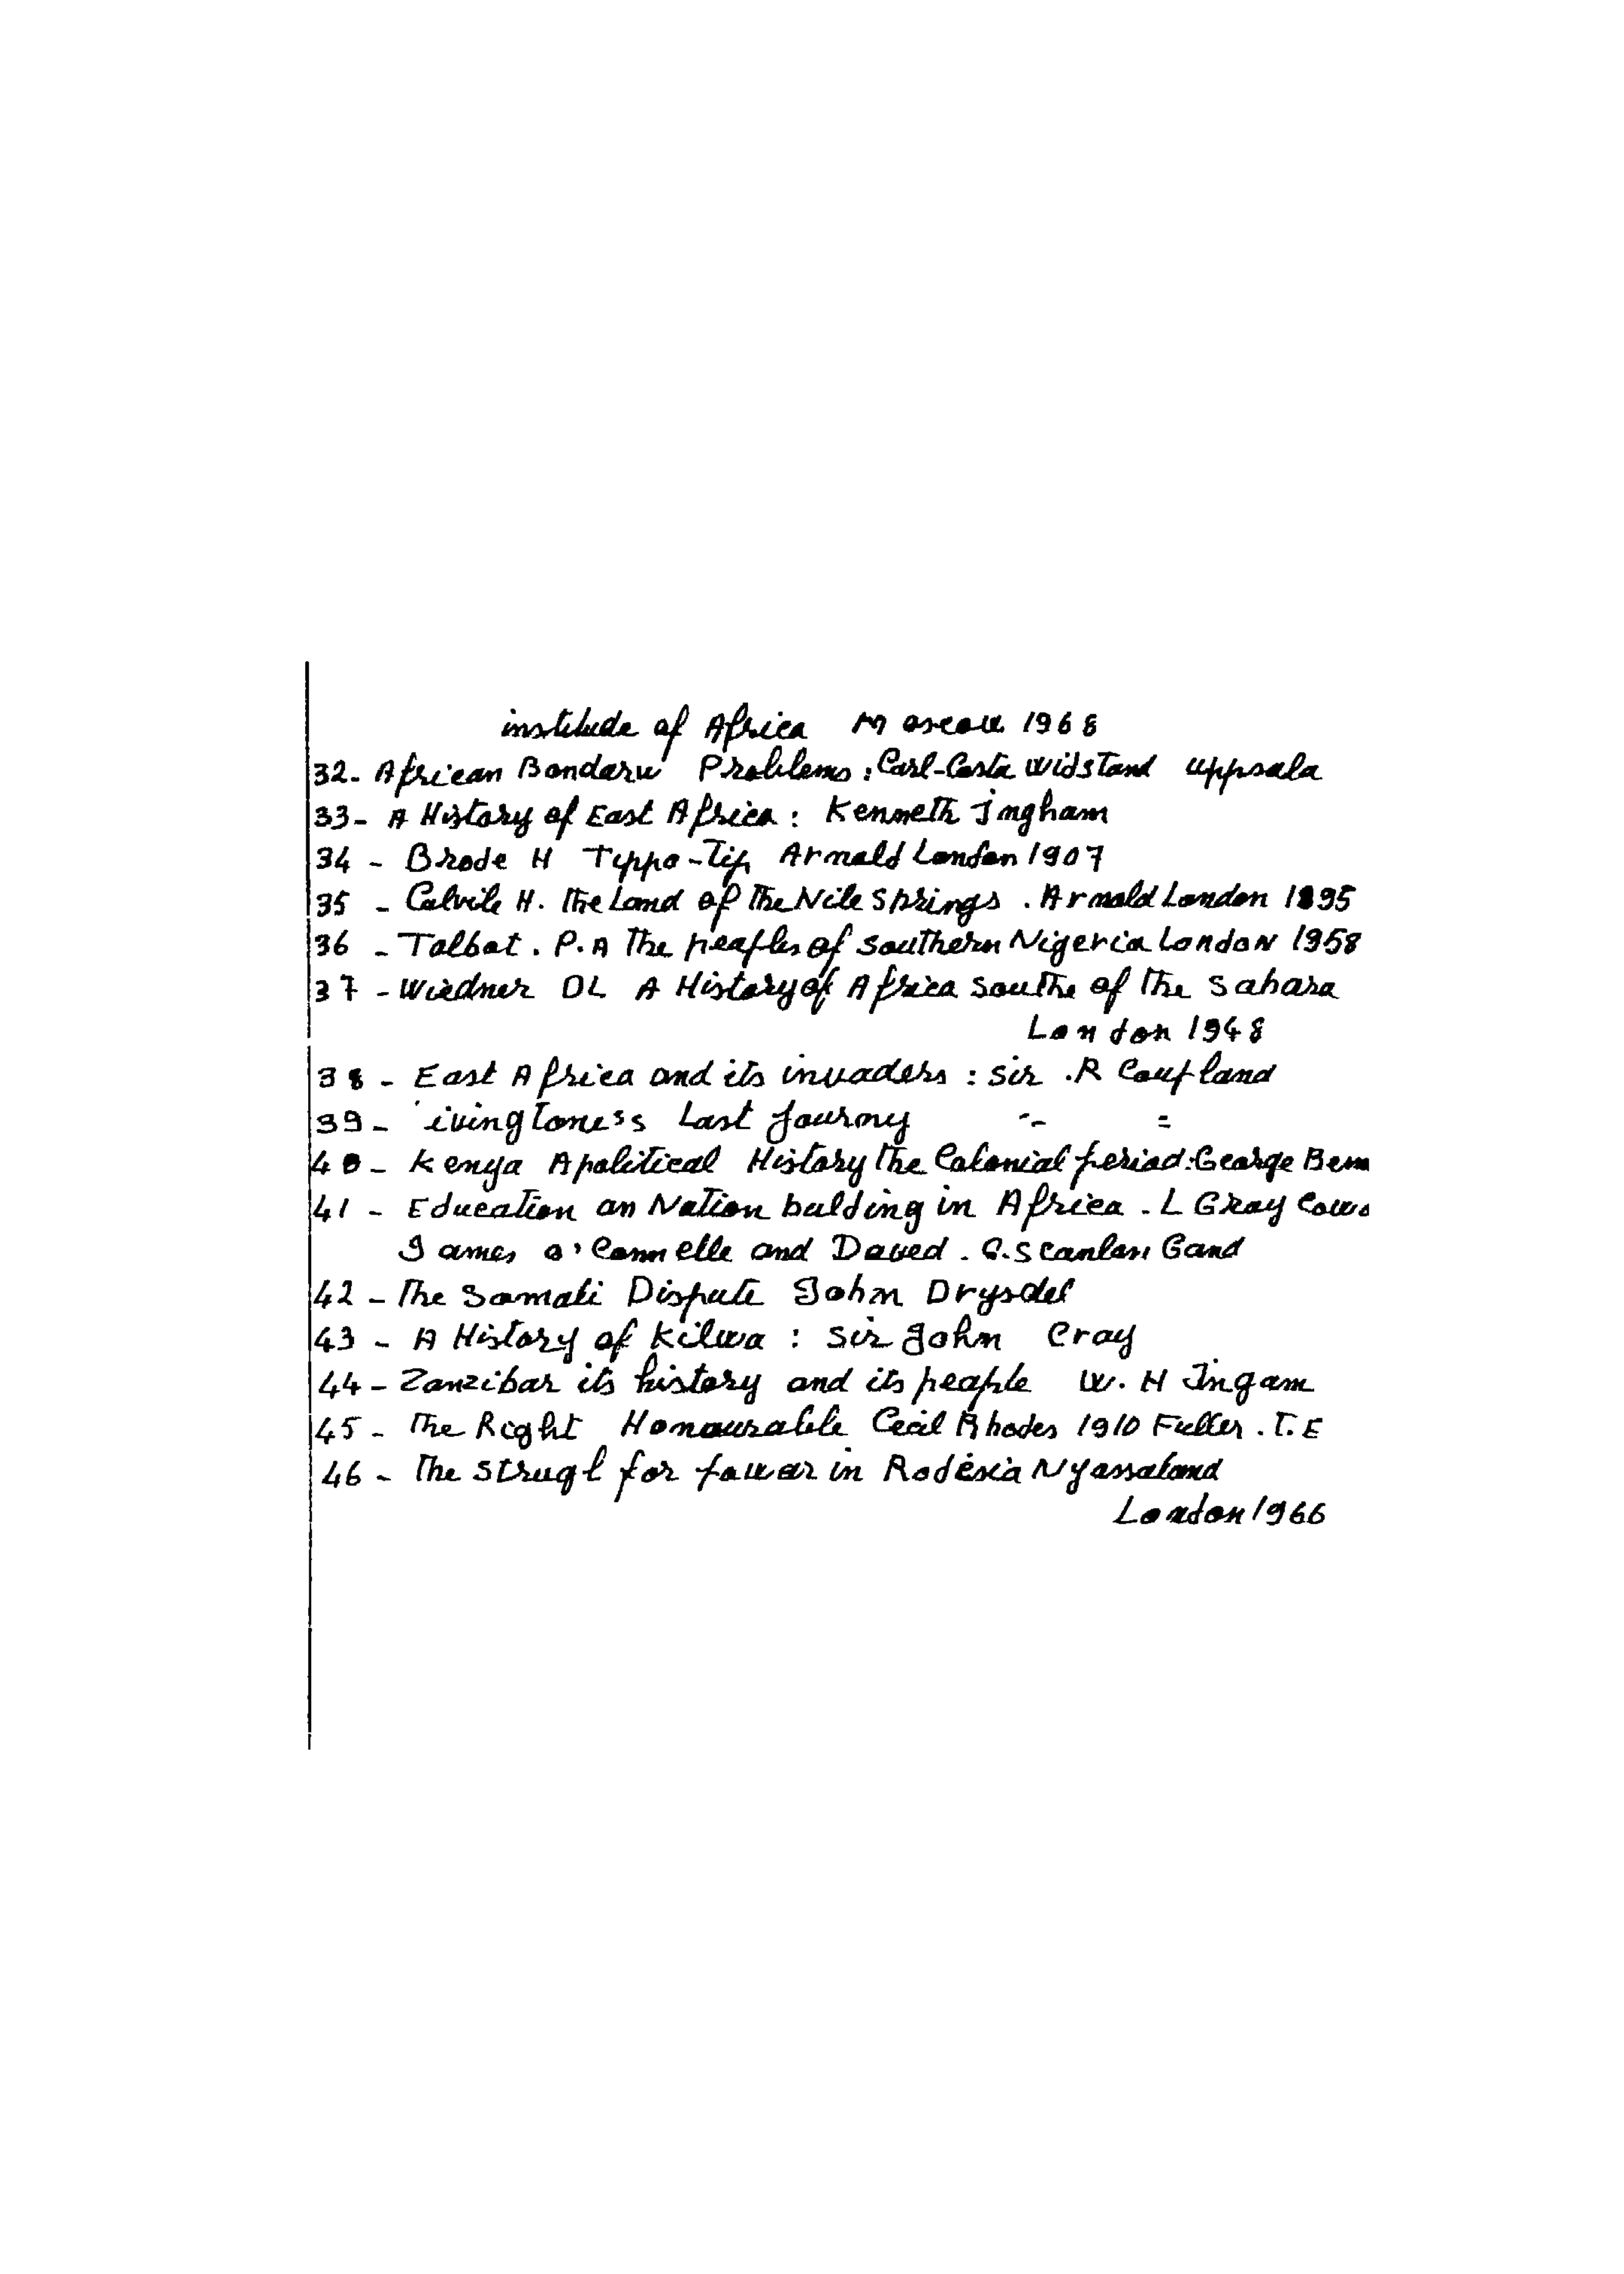 institude of Africa Moscow 1968
32- African Bondaru Problems : Carl-Costa widstand uppsala
33- A History of East Africa : Kenneth Ingham
34 - Brode H Tippo-Tip Arnald London 1907
35 - Calvile H. The Land of The Nile Springs . Arnold London 1895
36 - Talbot . P.A The peaples of southern Nigeria London 1958
37 - Wiedner DL A History of Africa Southe of The Sahara
London 1948
38 - East Africa and its invaders : Sir .R Coupland
39 - ivingtone's Last Journy -- =
40 - Kenya Apolitical History The Colonial period : George Benn
41 - Education an Nation bulding in Africa . L Gray Cowa
James o'Connelle and Daved . G. Scanlan Gand
42 - The Somali Dispute John Drysdel
43 - A History of Kilwa : Sir John Cray
44 - Zanzibar its history and its peaple W. H Ingam
45 - The Right Honourable Cecil Rhodes 1910 Fuller . T.E
46 - The Strugl for pawar in Rodesia Nyassaland
London 1966